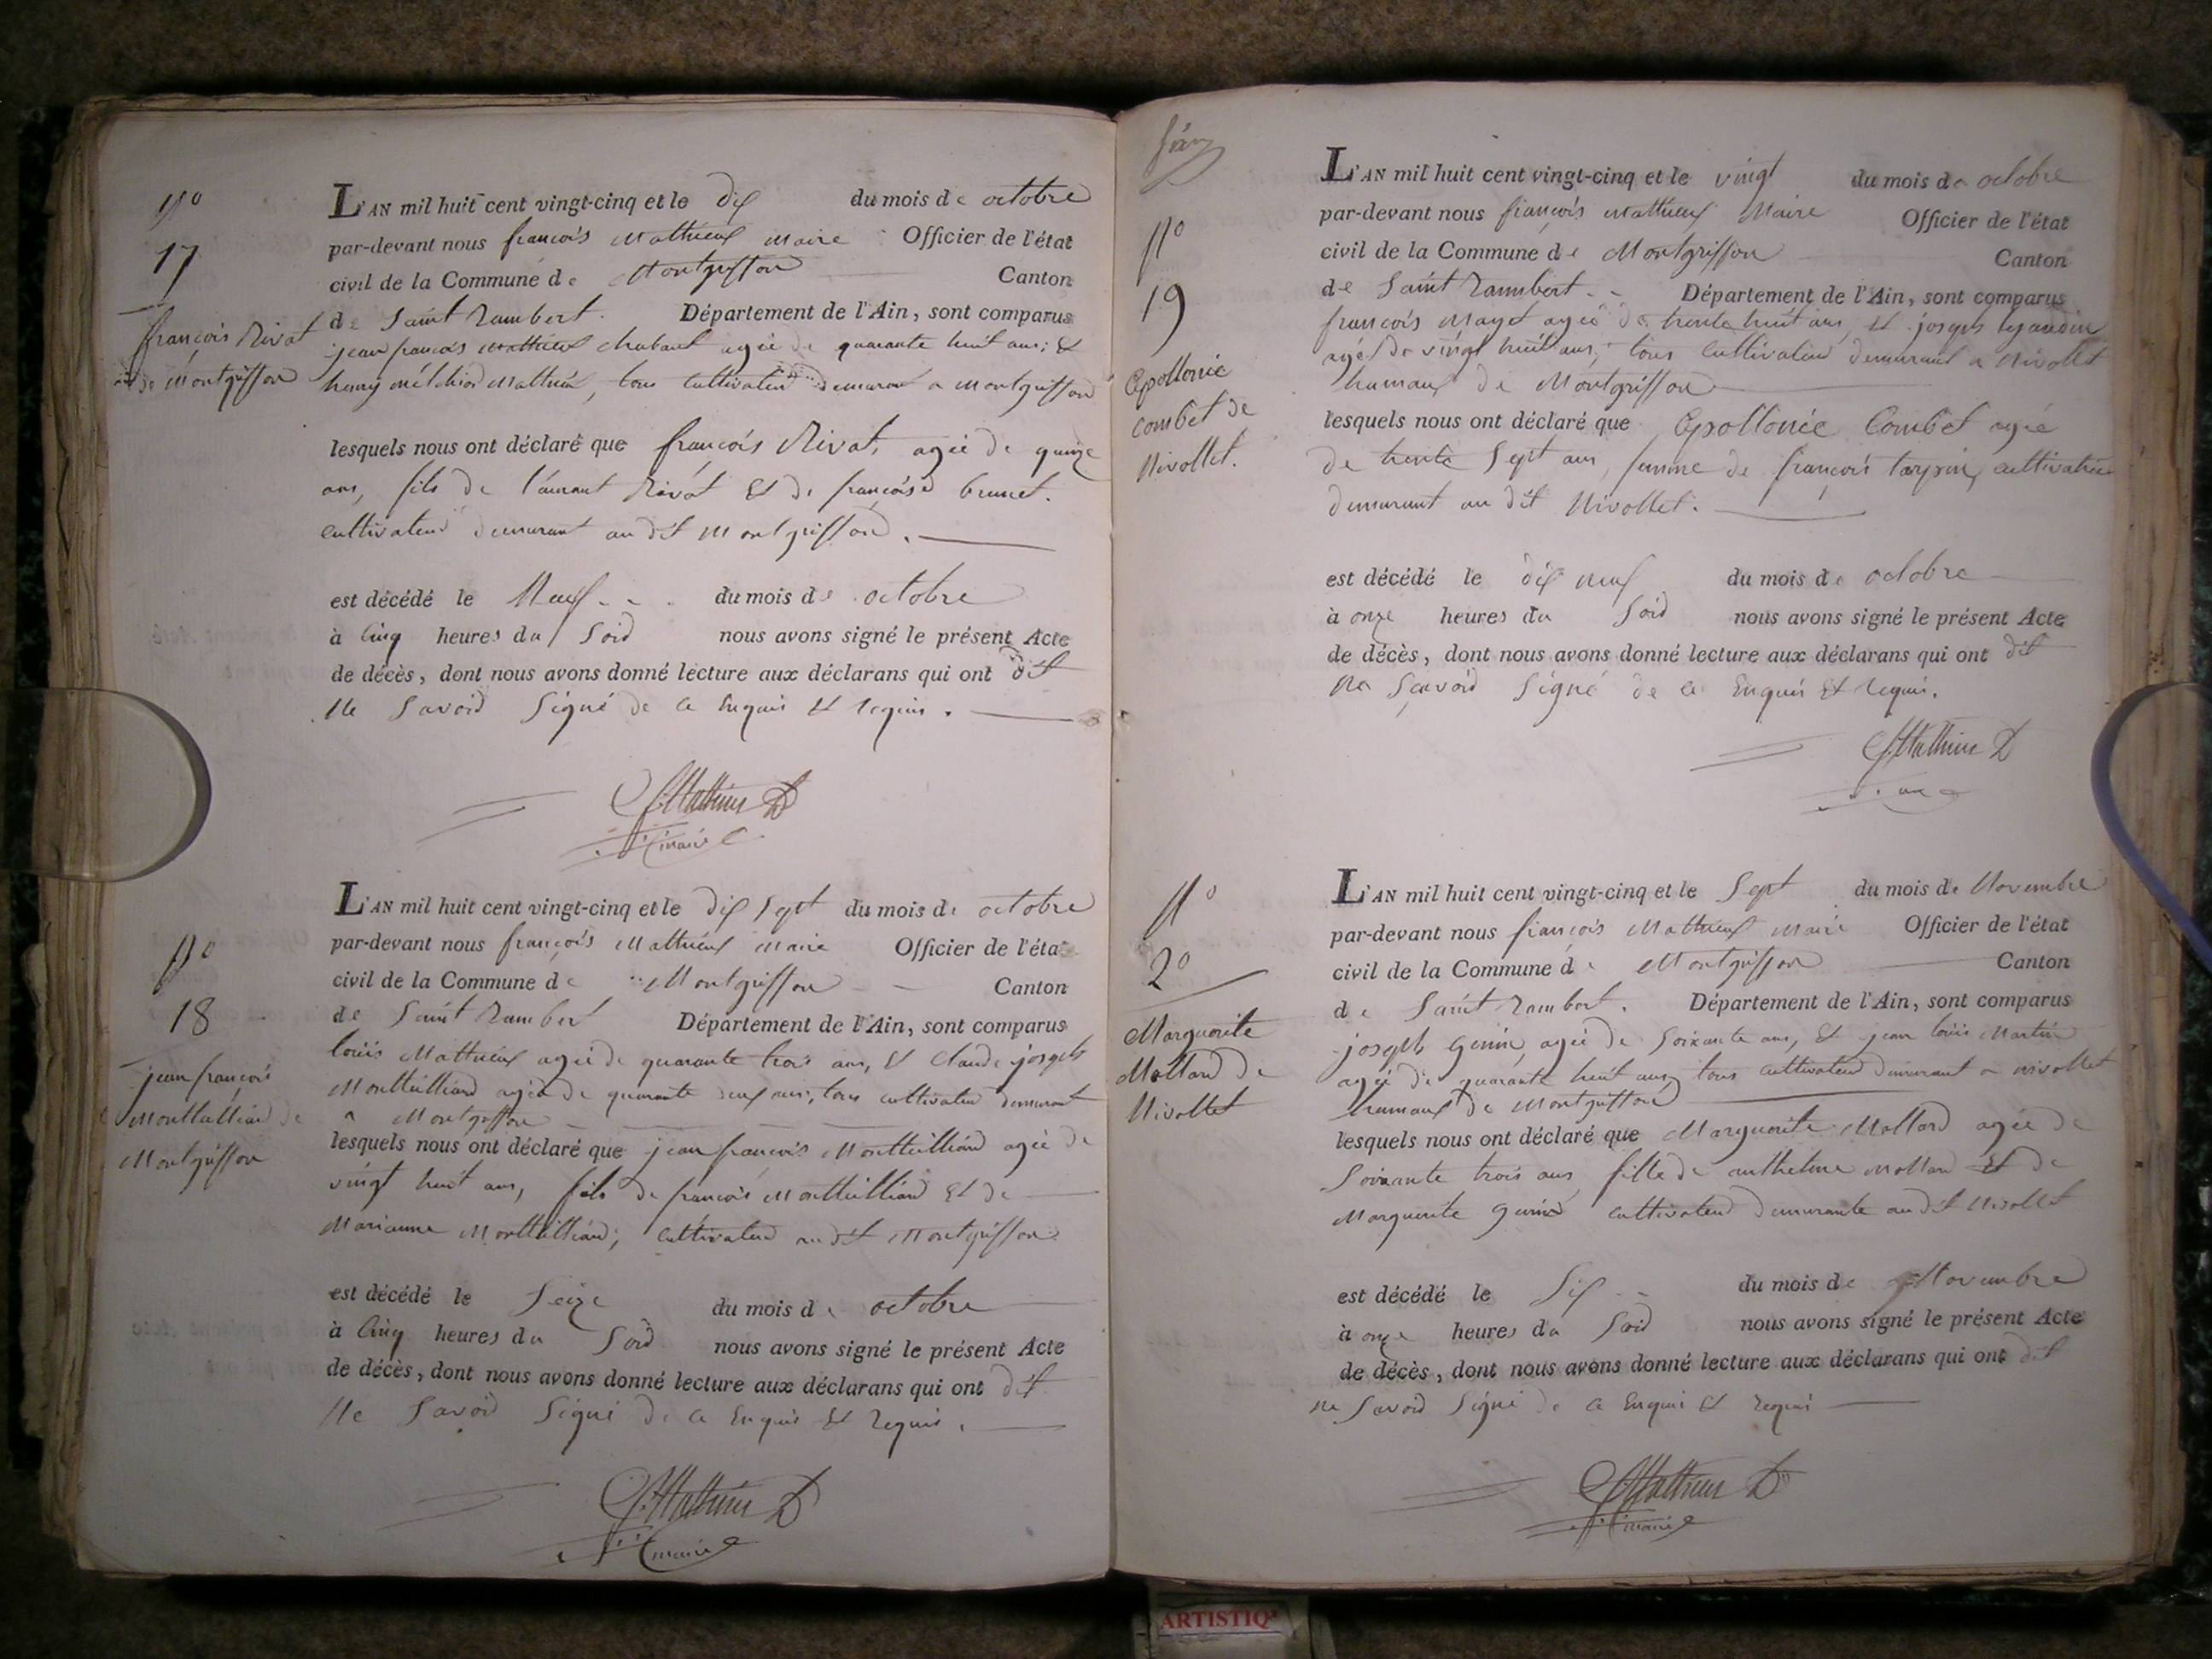 N°
17
françois Rivat
de Montgriffon
L'AN mil huit cent vingt-cinq et le dix du mois de octobre
par-devant nous françois Mathieux Maire Officier de l'état
civil de la Commune de Montgriffon Canton
de Saint Rambert. Département de l'Ain, sont comparus
jean francois chabaut agée de quarante huit ans; et
henry mélchior Mathieu, tous cultivateur demurant a Montgriffon
lesquels nous ont déclaré que françois Rivat, agée de quinze
ans, fils de Rivat et de françoise brunet.
cultivateur demurant au dit Montgriffon.
est décédé le Neuf du mois de octobre
à Cinq heures du Soir nous avons signé le présent Acte
de décès, dont nous avons donné lecture aux déclarans qui ont dit
Ne Savoir Signé de ce Enquis et requis.
Mathieux
maire
N°
18
jean françois
Montgriffon
L'AN mil huit cent vingt-cinq et le dix Sept du mois de octobre
par-devant nous françois Mathieux Maire Officier de l'état
civil de la Commune de Montgriffon Canton
de Saint Rambert Département de l'Ain, sont comparus
louis Mathieux agée de quarante trois ans, et Claude joseph
agée de quarante deux ans, tous cultivateur demurant
a Montgriffon
lesquels nous ont déclaré que jean francois agée de
vingt huit ans, fils de francois et de
Marianne cultivateur au dit Montgriffon
est décédé le Seize du mois de octobre
à Cinq heures du Soir nous avons signé le présent Acte
de décès, dont nous avons donné lecture aux déclarans qui ont dit
Ne Savoir Signé de ce Enquis et requis.
Mathieux
maire
N°
19
Apollonie
Combet de
Nivollet.
L'AN mil huit cent vingt-cinq et le vingt du mois de octobre
par-devant nous françois Mathieux Maire Officier de l'état
civil de la Commune de Montgriffon Canton
de Saint Rambert Département de l'Ain, sont comparus
françois Mayet agée de trente huit ans, et joseph
agée de vingt huit ans, tous cultivateur demurant a Nivollet
hamaux de Montgriffon
lesquels nous ont déclaré que Apollonie Combet agée
de trente Sept ans, femme de françois cultivatrice
demurant au dit Nivollet.
est décédé le dix neuf du mois de octobre
à onze heures du Soir nous avons signé le présent Acte
de décès, dont nous avons donné lecture aux déclarans qui ont dit
Ne Sçavoir Signé de ce Enquis et requis.
Mathieux
N°
20
Marguerite
Mollard de
Nivollet
L'AN mil huit cent vingt-cinq et le Sept du mois de Novembre
par-devant nous françois Mathieux Maire Officier de l'état
civil de la Commune de Montgriffon Canton
de Saint Rambert. Département de l'Ain, sont comparus
joseph agée de Soixante ans, et jean louis Martin
agée de quarante huit ans, tous cultivateur demurant a nivollet
hamaux de Montgriffon
lesquels nous ont déclaré que Marguerite Mollard agée de
Soixante trois ans fille de anthelme Mollard et de
Marguerite cultivateur demurante au dit Nivollet
est décédé le Six du mois de Novembre
à onze heures du Soir nous avons signé le présent Acte
de décès, dont nous avons donné lecture aux déclarans qui ont dit
ne Savoir Signé de ce Enquis et requis
Mathieux
maire
ARTISTIQ